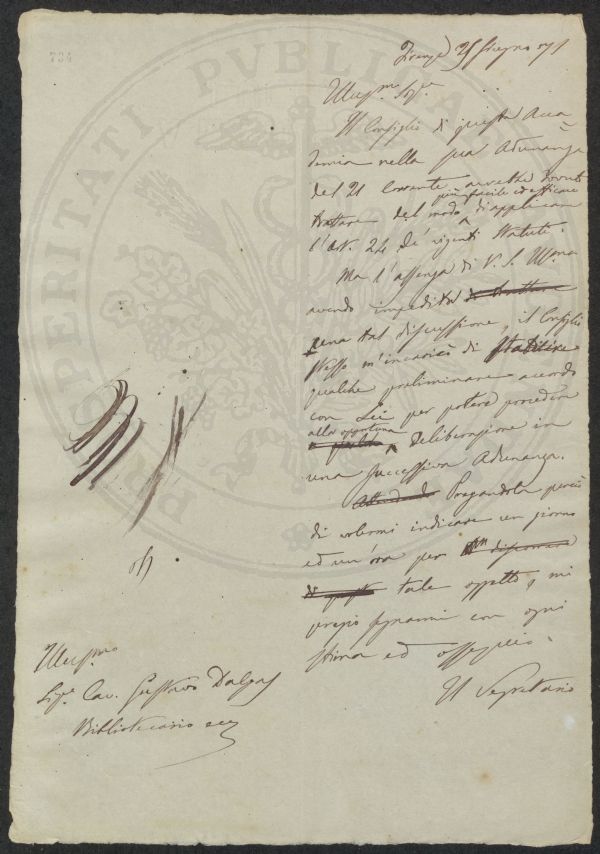 734
PROSPERITATI PVBLICAE
Firenze 25 Giugno 
Illustmo Sigre
Il Consiglio di questa Acca=
demia nella sua Adunanza
del 21 Corrente avrebbe dovuto
trattare del modo più facile ed efficace di applicare
l'Art. 24 de' vigenti Statuti.
Ma l'assenza di V. S. Illma
avendo impedito
una tal discussione, il Consiglio
stesso m'incaricò di stabilire
qualche preliminare accordo
con Lei per potere procedere
alla opportuna deliberazione in
una successiva Adunanza.
Pregandola perciò
di volermi indicare un giorno
ed un'ora per
tale oggetto, mi
pregio segnarmi con ogni
stima ed ossequio.
Il Segretario
Illustmo
Sigre Cav. Gustavo Dalgas
Bibliotecario ecc